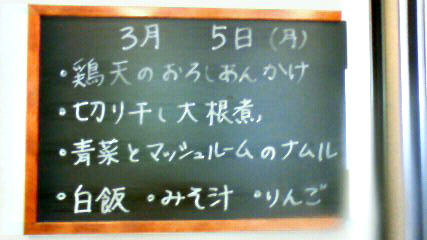 3月 5日(月)
・鶏天のおろしあんかけ
・切り干し大根煮
・青菜とマッシュルームのナムル
・白飯 ・みそ汁 ・りんご